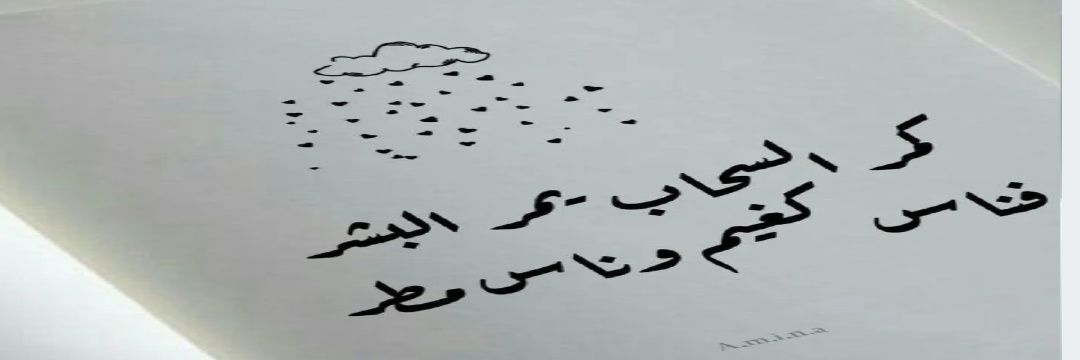 كمر السحاب يمر البشر
فناس كغيم وناس مطر
A.m.i.n.a